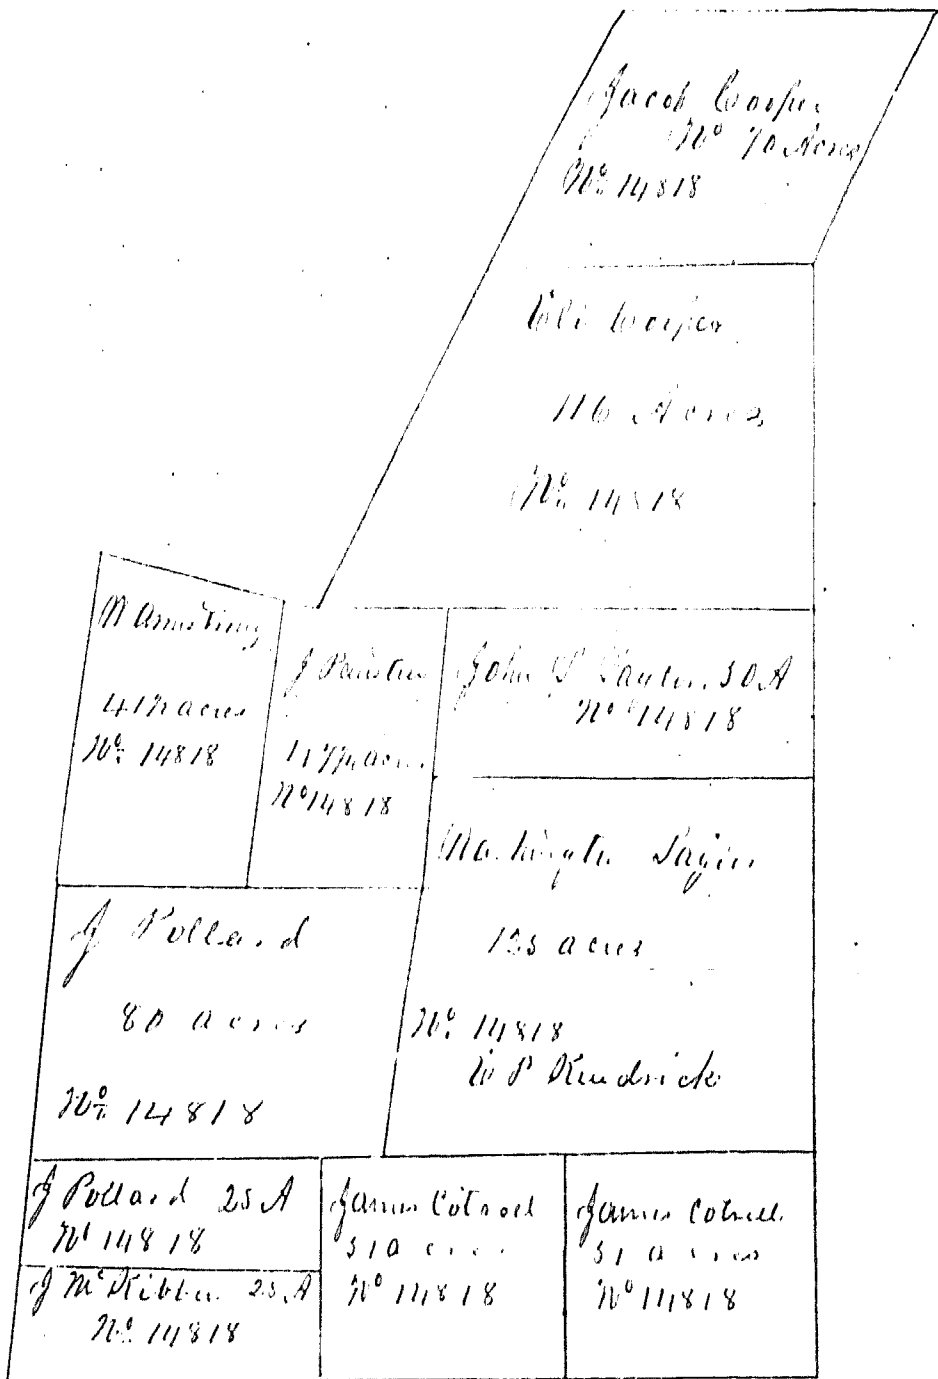 Jacob Cooper
No 70 Acres
No 14818
Eli Cooper
116 Acres
No 14818
Armstrong
acres
No 14818
J
No 14818
John 50 A
No 14818
Washington
125 acres
No 14818
P Kendrick
J Pollard
80 acres
No 14818
J Pollard 25 A
No 14818
J McKibben 25 A
No 14818
James Cotrell
51 acres
No 14818
James Cotrell
51 acres
No 14818